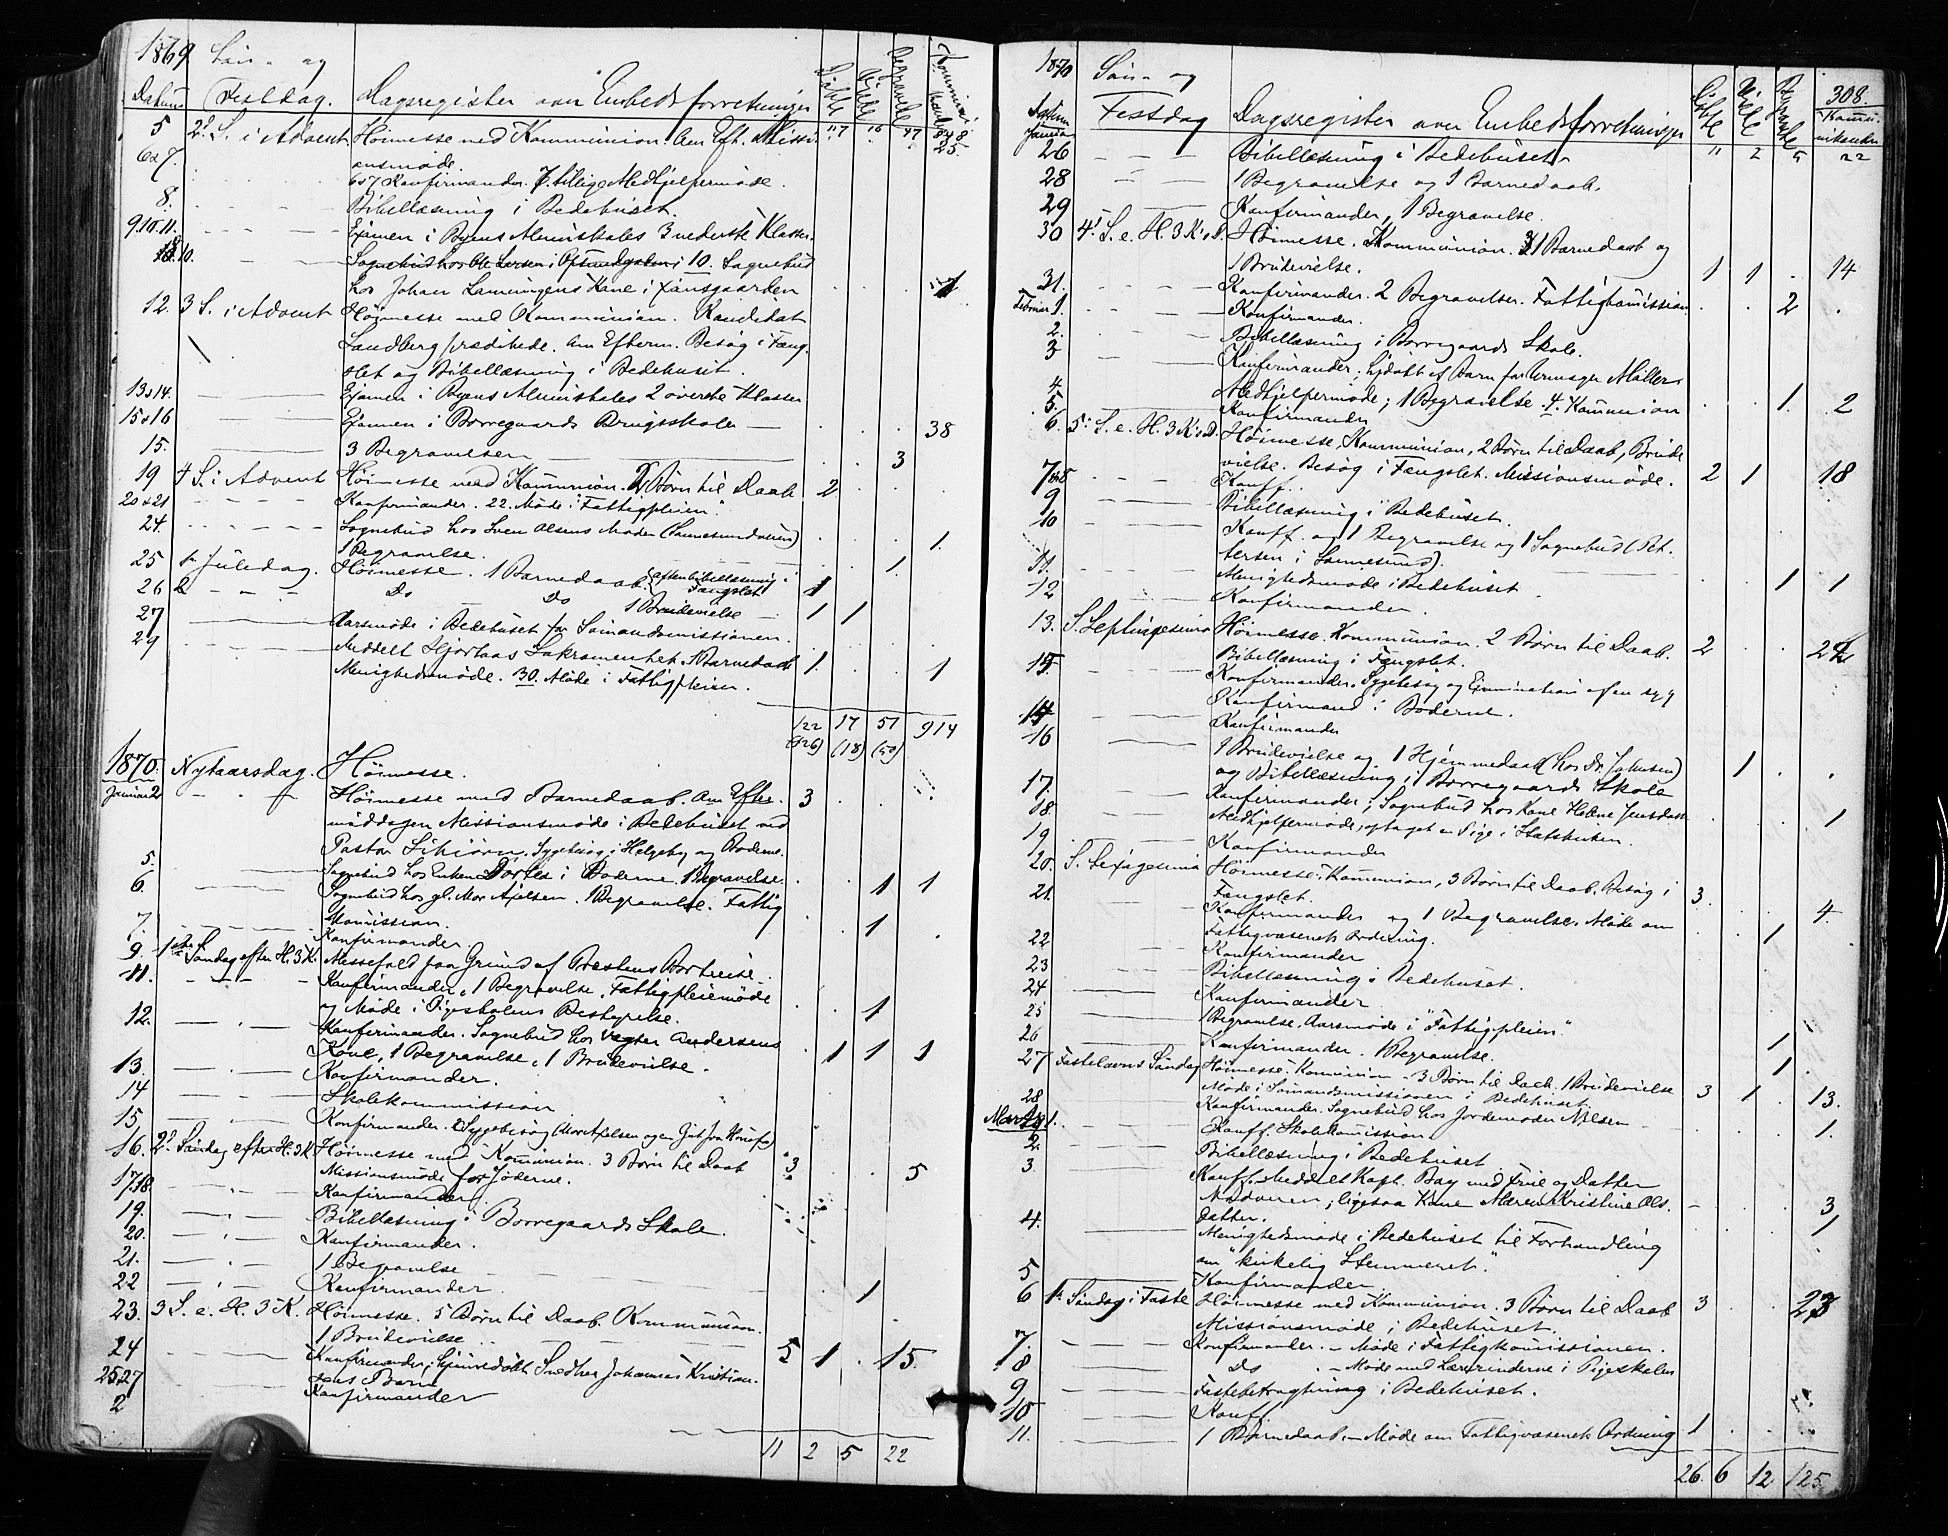 1869 Søn- og
Datum Festdag. Dagsregister over Embedsforretninger Døbte Viede Begravede Kommunikanter
5 2d S. i Advent Høimesse med Kommunion. Om Eft. Missi-
onsmøde.
6o7. 6o7 Konfirmander. 7. tillige Medhjelpermøde.
8. Bibellæsning i Bedehuset.
9.10.11. Examen i Byens Almuskoles 3 nederste Klasser.
10. Sognebud hos Ole Larsen i 10. Sognebud
hos Johan Kone i 1
12. 3 S. i Advent Høimesse med Kommunion. Kandidat
Landberg prædikede. Om Efterm. Besøg i Fæng-
slet og Bibellæsning i Bedehuset.
13o14. Examen i Byens Almuskoles 2 øverste Klasser
15o16 Examen i Borregaards Brugsskole 38
15. 3 Begravelser 3
19 4 S. i Advent Høimesse med Kommunion. 2 Børn til Daab 2
20o21 Konfirmander. 22. Møde i "Fattigpleien"
24. Sognebud hos Sven Olsens Moder (Sannesundveien) 1.
1 Begravelse.
25 1. Juledag. Høimesse. 1 Barnedaab. (Aftenbibellæsning i Fængslet) 1
26 2 Do Do 1 Brudevielse 1 1
27 Aarsmøde i Bedehuset for Sømandsmissionen.
29 Meddelt Hjortaas Sakramentet. 1 Barnedaab 1. 1
Menighedsmøde. 30. Møde i Fattigpleien.
122 17 51 914
(126) (18) (50)
1870. Nytaarsdag. Høimesse.
Januar 2 Høimesse med Barnedaab. Om Efter- 3
middagen Missionsmøde i Bedehuset ved
Pastor Sygebesøg i Helgeby og Boderne.
5. Sognebud hos Enken i Boderne. 1 Begravelse. 1 1
6. Sognebud hos gl. Mor Axelsen. 1 Begravelse. Fattig
komission. 1
7. Konfirmander.
9. 1ste Søndag efter H. 3 K. Messefald paa Grund af Præstens Bortreise.
11. Konfirmander. 1 Begravelse. Fattigpleiemøde
og Møde i Pigeskolens Bestyrelse. 1
12. Konfirmander. Sognebud hos Vægter Andersens
Kone, 1 Begravelse, 1 Brudevielse. 1 1 1
13. Konfirmander.
14 Skolekommission
15. Konfirmander.
16. 2d Søndag efter H. 3 K. Høimesse med Kommunion. 3 Børn til Daab 3 5
Missionsmøde for Jøderne.
17.18. Konfirmander.
19. Bibellæsning i Borregaards Skole.
20. Konfirmander.
21. 1 Begravelse
22 Konfirmander 1
23. 3 S. e. H. 3 K. Høimesse. 5 Børn til Daab. Kommunion.
1 Brudevielse 5 1 15.
24 Konfirmander; Hjemmedøbt Johannes Kristian-
sens Barn
25o27 Konfirmander
2
11 2 5 22
1870 Søn- og 308.
Datum Festdag Dagsregister over Embedsforretninger Døbte Viede Begravede Kommunikanter
Januar 11 2 5 22
26 Bibellæsning i Bedehuset
28 1 Begravelse og 1 Barnedaab.
29 Konfirmander, 1 Begravelse.
30 4. S. e. H. 3 K's D. Høimesse. Kommunion. 1 Barnedaab og
1 Brudevielse. 1 1 14
31. Konfirmander. 2 Begravelser. Fattigkomission 2
Februar 1. Konfirmander.
2. Bibellæsning i Borregaards Skole.
3 Konfirmander; Hjdøbt et Barn for Møller
4. Medhjelpermøde; 1 Begravelse. 4. Kommunion 1. 2
5. Konfirmander
6. 5. S. e. H. 3 K's D. Høimesse, Kommunion, 2 Børn til Daab, Brude
vielse. Besøg i Fængslet. Missionsmøde. 2 1 18
7o8 Konff.
9 Bibellæsning i Bedehuset.
10 Konff. og 1 Begravelse og 1 Sognebud (Pet-
tersen i Sannesund).
11. Menighedsmøde i Bedehuset 1 1
12 Konfirmander.
13. S. Septuagesima Høimesse. Kommunion. 2 Børn til Daab. 2 22
Bibellæsning i Fængslet.
Konfirmander. Sygebesøg og Examination af en syg
Konfirmand i Boderne.
15 Konfirmander
16 1 Brudevielse og 1 Hjemmedaab (hos Dr. Johnsen) 1
og Bibellæsning i Borregaards Skole
17. Konfirmander; Sognebud hos Kone Helene Jensdatt 1
18. Medhjelpermøde, optaget en Pige i Statskirken.
19 Konfirmander
20. S. Sexagesima Høimesse. Kommunion, 3 Børn til Daab. Besøg i 3.
Fængslet. 4.
21. Konfirmander og 1 Begravelse. Møde om
Fattigvæsenets Ordning. 1
22. Konfirmander
23 Bibellæsning i Bedehuset.
24 Konfirmander
25 1 Begravelse. Aarsmøde i "Fattigpleien"
26 Konfirmander. 1 Begravelse. 1
27 Fastelavns Søndag Høimesse. Kommunion. 3 Børn til Daab. 1 Brudevielse 3 1 13.
Møde i Sømandsmissionen i Bedehuset.
28 Konfirmander. Sognebud hos Jordemoder Nielsen 1.
Marts 1. Konff. Skolekomission
2. Bibellæsning i Bedehuset
3. Konff. Meddelt Kapt. Bay med Frue og Datter
Nadveren; ligesaa Kone Maren Kristine Ols- 3
datter. 1
4. Menighedsmøde i Bedehuset til Forhandling
om "kirkelig Stemmeret."
5 Konfirmander
6 1ste Søndag i Faste Høimesse med Kommunion. 3 Børn til Daab 3 23
Missionsmøde i Bedehuset.
7. Konfirmander. - Møde i Fattigkomissionen.
8 Do - Møde med Lærerinderne i Pigeskolen
9 Fastebetragtning i Bedehuset.
10 Konff.
11. 1 Barnedaab. - Møde om Fattigvæsenets Ordning 1
26. 6 12. 125.